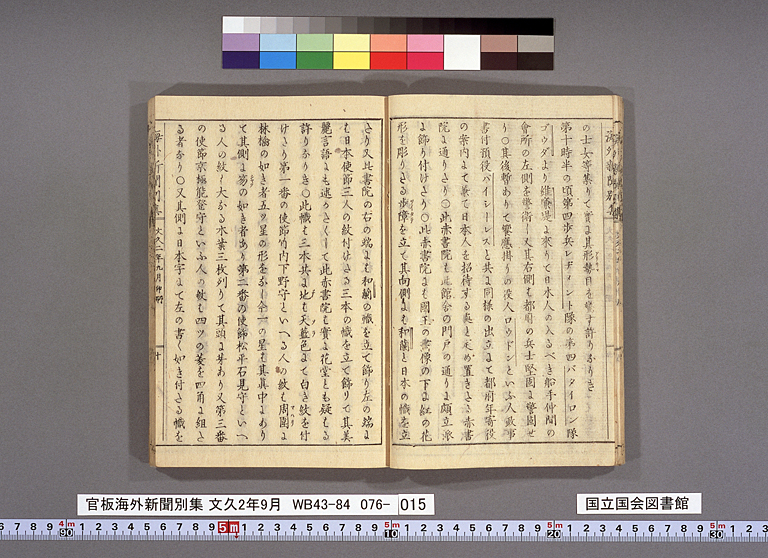 の士女寄集りて實に其形勢目を驚す許りなりき
第十時半の頃第四歩兵レヂメント隊の第四バタイロン隊
ゴウダより維廉堤に來りて日本人の入るべき船手仲間の
會所の左側を警衛し又其右側も都府の兵士堅固に警固せ
り○其後暫ありて饗應掛りの役人ロウドンといふ人政事
書付預役バイシートレスと共に同様の出立にて都府年寄役
の案内にて兼て日本人を招待する奥と定め置きたる赤書
院に通りたり○此赤書院も此館舎の門戸の通りに頗立派
に飾り付けたり○此赤書院にも國王の畫像の下に紅の花
形を彫りたる歩障を立て其両側にも和蘭と日本の幟を立
たり又此書院の右の端にも和蘭の幟を立て飾り左の端に
も日本使節三人の紋付けたる三本の幟を立て飾りて其美
麗言語にも述がたくして此赤書院も實に花堂とも疑はる
許りなりき○此幟も三本共に地も天藍色にて白き紋を付
けたり第一番の使節竹内下野守といへる人の紋も周圍に
林檎の如き者五ツ星の形をなし今一の星も其眞中にあり
て其側に笏の如き者あり第二番の使節松平石見守といへ
る人の紋も大なる木葉三枚列りて其頭に芽あり又第三番
の使節京極能登守といふ人の紋も四ツの菱を四角に組た
る者なり○又其側に日本字にて左の書く如き付たる幟を
海外新聞別集 文久二年九月 十
官板海外新聞別集 文久2年9月 WB43-84 076-015
国立国会図書館